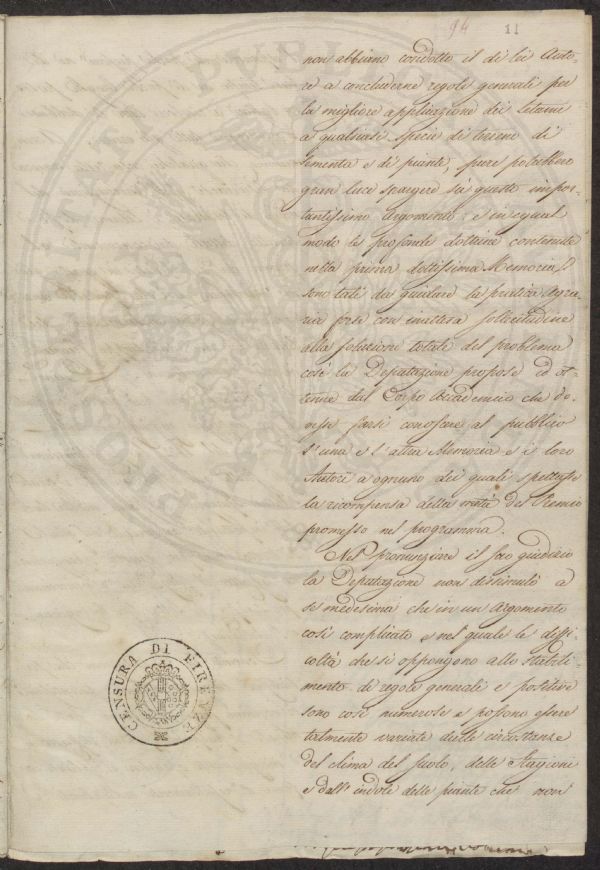 94 11
non abbiano condotto il di lei Auto-
re a concluderne regole generali per
la migliore applicazione dei letami
a qualsiasi specie di terreno di
sementa e di piante, pure potrebbero
gran luce spargere su questo impor-
tantissimo argomento e in egual
modo le profonde dottrine contenute
nella prima dottissima Memoria
sono tali da guidare la pratica agra-
ria forse con inattesa sollecitudine
alla soluzione totale del problema
così la Deputazione propose ed ot-
tenne dal Corpo Accademico che do-
vesse farsi conoscere al pubblico
l'una e l'altra Memoria e i loro
Autori a ognuno dei quali spettasse
la ricompensa della metà del Premio
promesso nel programma.
Nel pronunziare il suo giudizio
la Deputazione non dissimulò a
se medesima che in un argomento
così complicato e nel quale le diffi-
coltà che si oppongono allo stabili-
mento di regole generali e positive
sono così numerose e possono essere
talmente variate dalle circostanze
del clima del suolo, delle stagioni
e dall'indole delle piante che non
CENSURA DI FIRENZE